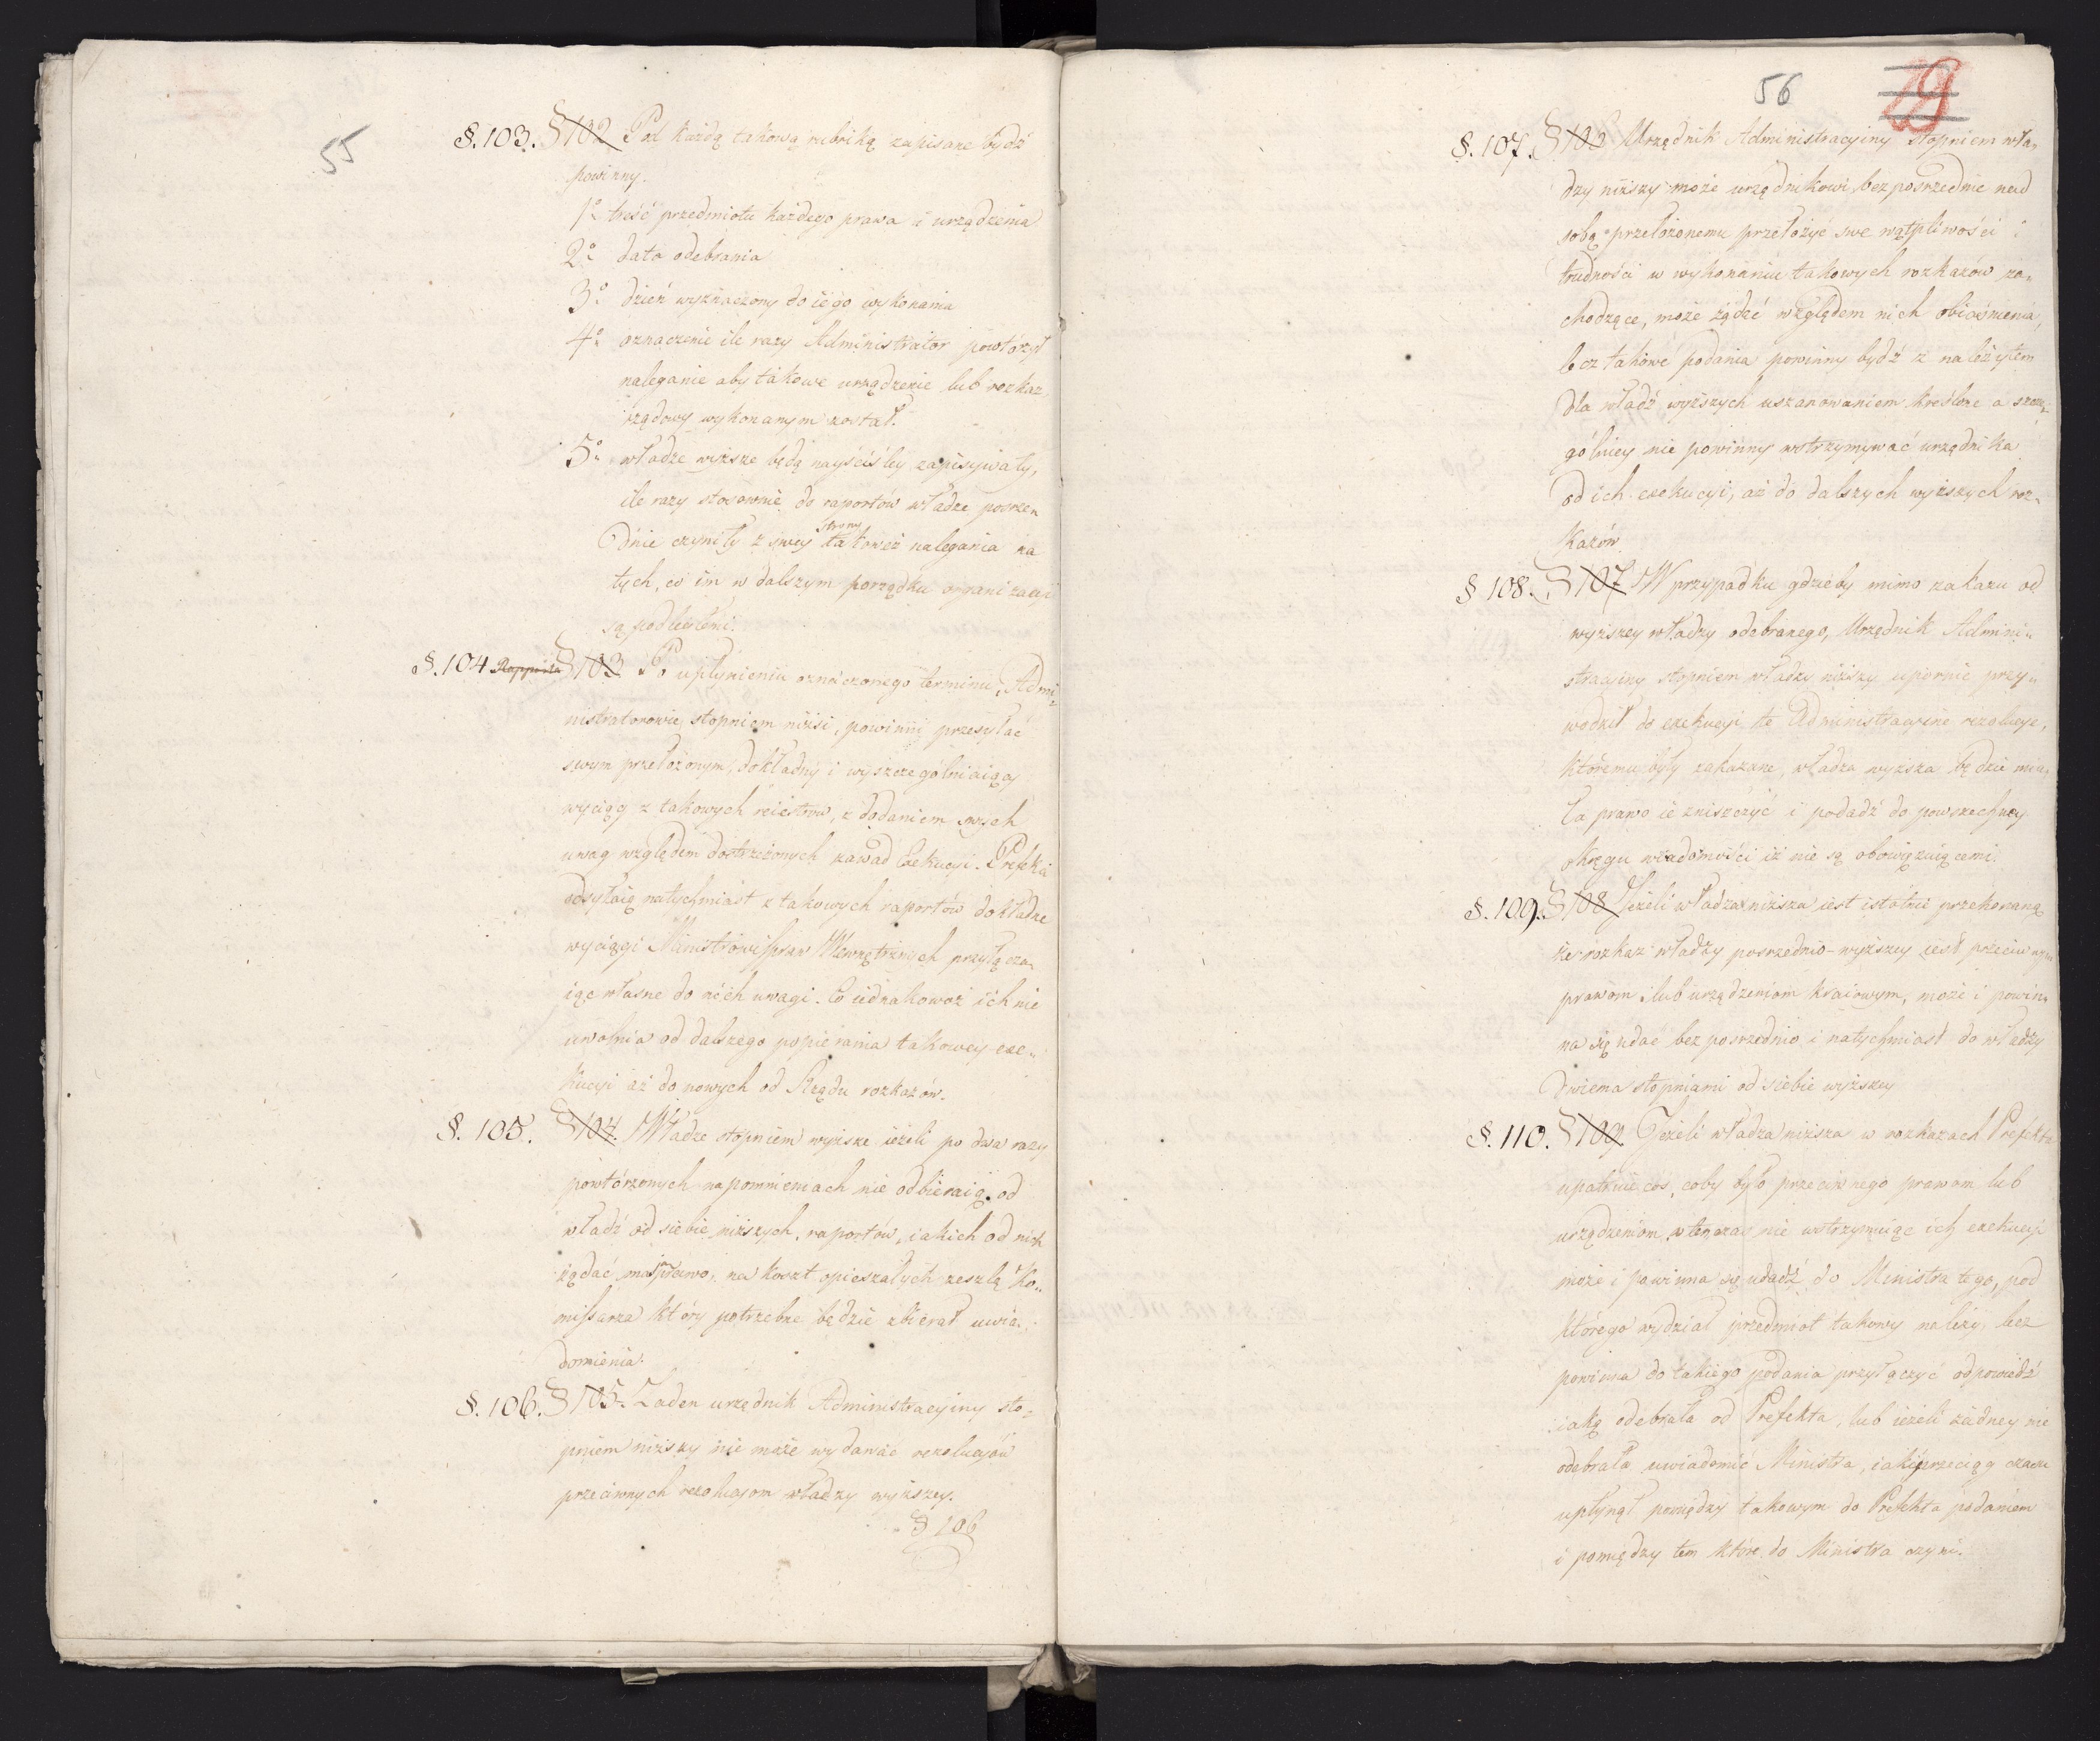 55
§. 103. § 102 Pod każdą takową rubriką zapisane bydź
powinny.
1º treść przedmiotu każdego prawa i urządzenia
2º data odebrania
3º dzień wyznaczony do iego wykonania
4º oznaczenie ile razy Administrator powtorzył
naleganie aby takowe urządzenie lub rozkaz
rządowy wykonanym został.
5º władze wyższe będą nayściśley zapisywały,
ile razy stosownie do raportów władze posrze„
dnie czyniły z swey strony takoweż nalegania na
tych, co im w dalszym porządku organizacyi
są podległemi.
§. 104 Rapporta § 103. Po upłynieniu oznaczonego terminu, Admi„
nistratorowie stopniem niżsi, powinni przesyłać
swym przełożonym, dokładny i wyszczególniaiący
wyciąg z takowych reiestrów, z dodaniem swych
uwag względem dostrzeżonych zawad Exekucyi. Prefekci
odsyłaią natychmiast z takowych raportów dokładne
wyciągi Ministrowi spraw Wewnętrznych przyłącza„
iąc własne do nich uwagi. Co iednakowoż ich nie
uwolnia od dalszego popierania takowey exe„
kucyi aż do nowych od Rządu rozkazów.
§. 105. § 104. Władze stopniem wyższe ieżeli po dwa razy
powtórzonych napomnieniach nie odbieraią od
władz od siebie niższych, raportów, iakich od nich
żądać maią prawo, na koszt opieszałych zeszlą Ko„
missarza który potrzebne będzie zbierał uwia„
domienia.
§. 106. § 105. Żaden urzędnik Administracyiny sto„
pniem niższy nie może wydawać rezolucyów
przeciwnych rezolucyom władzy wyższey.
§ 106
56 29
§. 107. § 106 Urzędnik Administracyiny stopniem wła„
dzy niższy może urzędnikowi bezposrzednie nad
sobą przełożonemu przełożyć swe wątpliwości i
trudności w wykonaniu takowych rozkazów za„
chodzące, może żądać względem nich obiaśnienia,
lecz takowe podania powinny bydź z należytem
dla władz wyższych uszanowaniem kreślone a szcze„
gólniey nie powinny wstrzymywać urzędnika
od ich exekucyi, aż do dalszych wyższych roz„
kazów.
§ 108. § 107 W przypadku gdzieby mimo zakazu od
wyższey władzy odebranego, Urzędnik Admini„
stracyiny stopniem władzy niższy upornie przy„
wodził do exekucyi te Administracyine rezolucye,
któremu były zakazane, władza wyższa będzie mia„
ła prawo ie zniszczyć i podadź do powszechney
okręgu wiadomości iż nie są obowięzuiącemi.
§. 109. § 108 Jeżeli władza niższa iest istotnie przekonaną
że rozkaz władzy posrzednio-wyższey iest przeciwnym
prawom lub urządzeniom kraiowym, może i powin„
na się udać bezposrzednio i natychmiast do władzy
dwiema stopniami od siebie wyższey
§. 110. § 109. Jeżeli władza niższa w rozkazach Prefekta
upatruie coś, coby było przeciwnego prawom lub
urządzeniom wtenczas nie wstrzymuiąc ich exekucyi
może i powinna się udadź do Ministra tego, pod
którego wydział przedmiot takowy należy, lecz
powinna do takiego podania przyłączyć odpowiedź
iaką odebrała od Prefekta, lub ieżeli żadney nie
odebrała uwiadomić Ministra, iaki przeciąg czasu
upłynął pomiędzy takowym do Prefekta podaniem
i pomiędzy tem które do Ministra czyni.